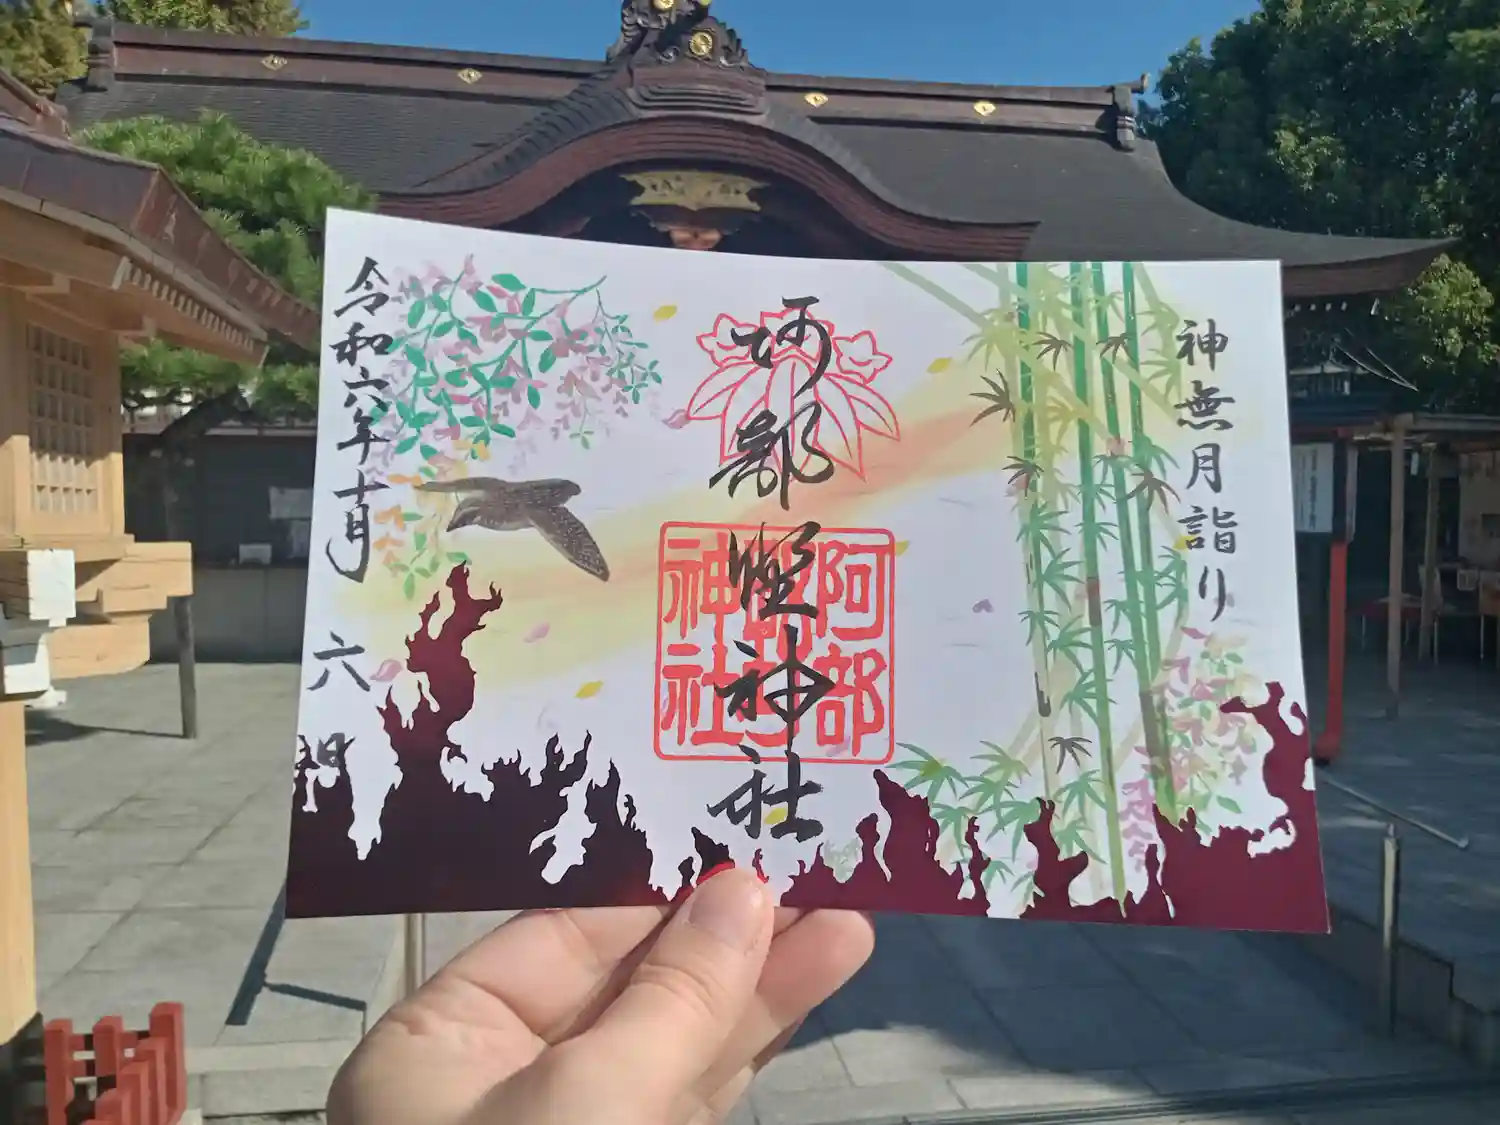 神無月詣り
阿部野神社
阿部野神社
令和六年十月六日